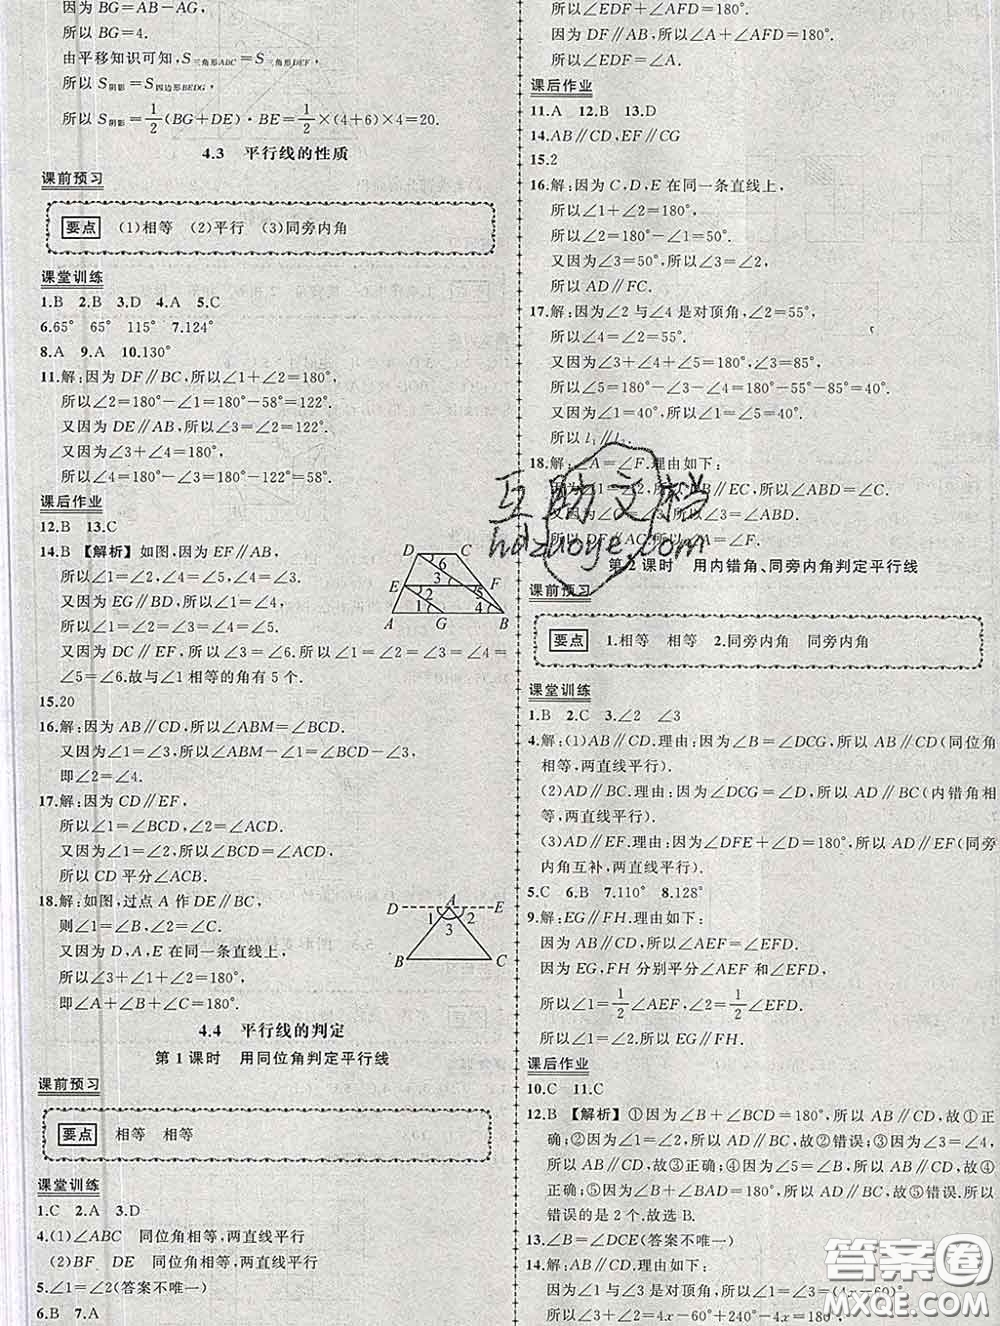 因为 BG=AB−AG,
所以 BG=4.
由平移知识可知, S三角形ABC=S三角形DEF,
所以 S阴影=S四边形BEDG,
所以 S阴影=1/2(BG+DE)·BE=1/2×(4+6)×4=20.
4.3 平行线的性质
课前预习
要点 (1)相等 (2)平行 (3)同旁内角
课堂训练
1.B 2.B 3.D 4.A 5.C
6.65° 65° 115° 7.124°
8.A 9.A 10.130°
11.解:因为 DF∥BC,所以∠1+∠2=180°,
所以∠2=180°−∠1=180°−58°=122°.
又因为 DE∥AB,所以∠3=∠2=122°.
又因为∠3+∠4=180°,
所以∠4=180°−∠3=180°−122°=58°.
课后作业
12.B 13.C
14.B 【解析】如图,因为 EF∥AB,
所以∠1=∠2,∠3=∠4.
又因为 EG∥BD,所以∠1=∠4.
又因为∠4=∠5.
又因为 DC∥EF,所以∠3=∠6.所以∠1=∠2=∠3=∠4=
∠5=∠6.故与∠1相等的角有 5 个.
D C 6 E 2 3 F 1 5 4 A G B
15.20
16.解:因为 AB∥CD,所以∠ABM=∠BCD.
又因为∠1=∠3,所以∠ABM−∠1=∠BCD−∠3,
即∠2=∠4.
17.解:因为 CD∥EF,
所以∠1=∠BCD,∠2=∠ACD.
又因为∠1=∠2,所以∠BCD=∠ACD.
所以 CD 平分∠ACB.
18.解:如图,过点 A 作 DE∥BC,
则∠1=∠B,∠2=∠C.
又因为 D,A,E 在同一条直线上,
所以∠3+∠1+∠2=180°,
即∠A+∠B+∠C=180°.
D A E 1 2 3 B C
4.4 平行线的判定
第 1 课时 用同位角判定平行线
课前预习
要点 相等 相等
课堂训练
1.C 2.A 3.D
4.(1)∠ABC 同位角相等,两直线平行
(2)BF DE 同位角相等,两直线平行
5.∠1=∠2(答案不唯一)
6.B 7.A
所以∠EDF+∠AFD=180°.
因为 DF∥AB,所以∠A+∠AFD=180°.
所以∠EDF=∠A.
课后作业
11.A 12.B 13.D
14.AB∥CD,EF∥CG
15.2
16.解:因为 C,D,E 在同一条直线上,
所以∠1+∠2=180°,
所以∠2=180°−∠1=50°.
又因为∠3=50°,所以∠2=∠3,
所以 AD∥FC.
17.解:因为∠2与∠4是对顶角,∠2=55°,
所以∠4=∠2=55°.
又因为∠3+∠4+∠5=180°,∠3=85°,
所以∠5=180°−∠3−∠4=180°−85°−55°=40°.
又因为∠1=40°,所以∠1=∠5=40°.
所以 l₁∥l₂.
18.解:∠A=∠F.理由如下:
因为∠1=∠2,所以 DB∥EC,所以∠ABD=∠C.
因为∠C=∠3,所以∠3=∠ABD.
所以 DF∥AC,所以∠A=∠F.
第 2 课时 用内错角、同旁内角判定平行线
课前预习
要点 1.相等 相等 2.同旁内角 同旁内角
课堂训练
1.B 2.C 3.∠2 ∠3
4.解:(1)AB∥CD.理由:因为∠B=∠DCG,所以 AB∥CD(同位角
相等,两直线平行).
(2)AD∥BC.理由:因为∠DCG=∠D,所以 AD∥BC(内错角相
等,两直线平行).
(3)AD∥EF.理由:因为∠DFE+∠D=180°,所以 AD∥EF(同旁
内角互补,两直线平行).
5.C 6.B 7.110° 8.128°
9.解:EG∥FH.理由如下:
因为 AB∥CD,所以∠AEF=∠EFD.
因为 EG,FH 分别平分∠AEF 和∠EFD,
所以∠1=1/2∠AEF,∠2=1/2∠EFD.
所以∠1=∠2.所以 EG∥FH.
课后作业
10.C 11.C
12.B 【解析】①因为∠B+∠BCD=180°,所以 AB∥CD,故①
正确;②因为∠1=∠2,所以 AD∥BC,故②错误;③因为∠3=∠4,
所以 AB∥CD,故③正确;④因为∠5=∠B,所以 AB∥CD,故④
正确;⑤因为∠B+∠BAD=180°,所以 AD∥BC,故⑤错误.所以
错误的是 2 个.故选 B.
13.∠B=∠DCE(答案不唯一)
14.解:AB∥CD.理由如下:
因为∠1与∠3是对顶角,所以∠1=∠3=(4x−60)°.
所以∠3+∠2=4x−60°+240°−4x=180°.
互助文档
hdzuoye.com
答案圈
MXQE.COM